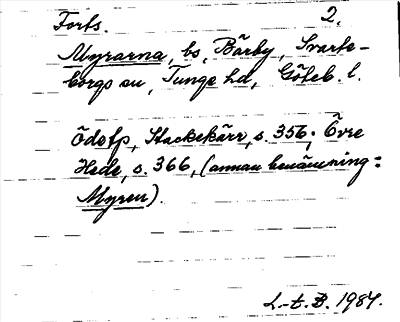 Forts. 2.
Myrarna, bs, Bärby, Svarte-
borgs sn, Tunge hd, Göteb. l.
Ödefp, Stackekärr, s. 356; Övre
Hede, s. 366, (annan benämning:
Myren).
L-t. B. 1984.